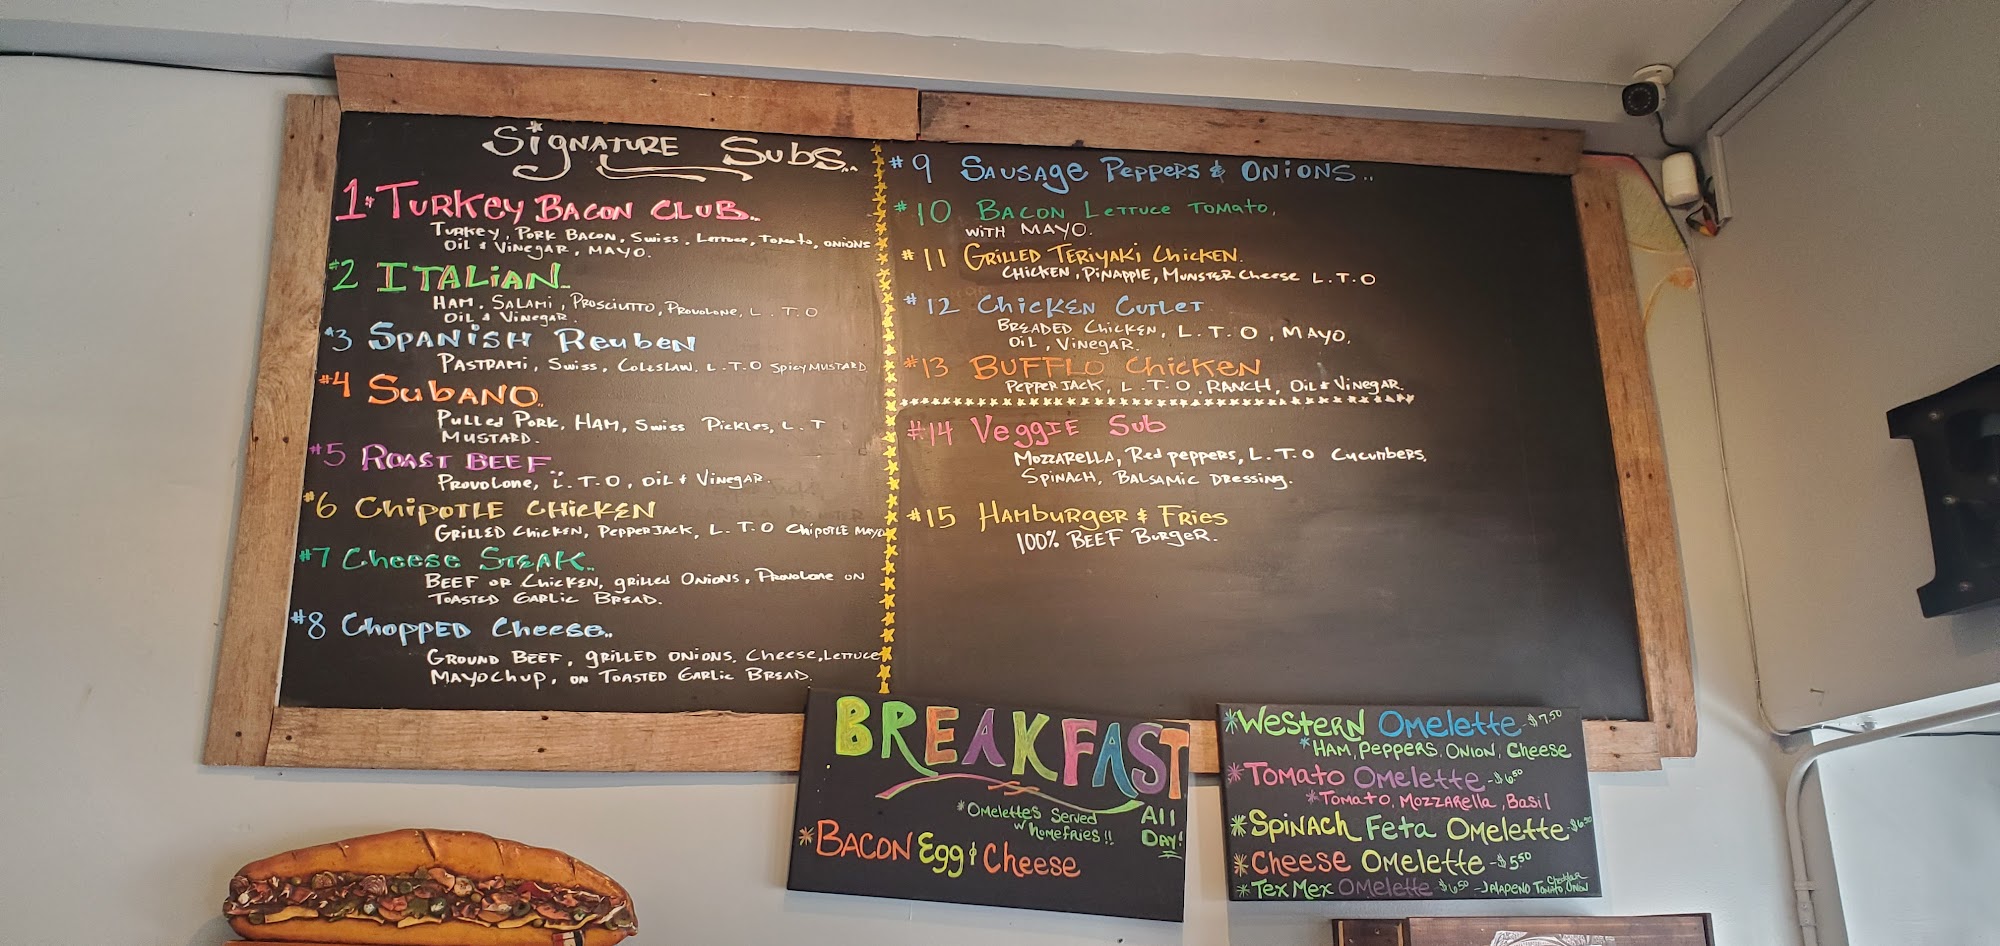 Signature Subs..
1# Turkey Bacon Club..
Turkey, Pork Bacon, Swiss, Lettuce, Tomato, Onions
Oil & Vinegar, Mayo.
#2 Italian..
Ham, Salami, Prosciutto, Provolone, L.T.O
Oil & Vinegar.
#3 Spanish Reuben
Pastrami, Swiss, Coleslaw, L.T.O Spicy Mustard
#4 Subano..
Pulled Pork, Ham, Swiss Pickles, L.T
Mustard.
#5 Roast Beef..
Provolone, L.T.O, Oil & Vinegar.
#6 Chipotle Chicken
Grilled Chicken, Pepper Jack, L.T.O Chipotle Mayo
#7 Cheese Steak..
Beef or Chicken, grilled Onions, Provolone on
Toasted Garlic Bread.
#8 Chopped Cheese..
Ground Beef, grilled onions, Cheese, Lettuce
Mayochup, on Toasted Garlic Bread.
#9 Sausage Peppers & Onions..
#10 Bacon Lettuce Tomato,
with Mayo.
#11 Grilled Teriyaki Chicken.
Chicken, Pinapple, Munster Cheese L.T.O
#12 Chicken Cutlet
Breaded Chicken, L.T.O, Mayo,
Oil, Vinegar.
#13 Bufflo Chicken
Pepper Jack, L.T.O, Ranch, Oil & Vinegar.
#14 Veggie Sub
Mozzarella, Red peppers, L.T.O Cucumbers,
Spinach, Balsamic Dressing.
#15 Hamburger & Fries
100% Beef Burger.
BREAKFAST
*Omelettes Served
w/ homefries!!
All
Day!
*Bacon Egg & Cheese
*Western Omelette - $7.50
*Ham, Peppers, Onion, Cheese
*Tomato Omelette - $6.50
*Tomato, Mozzarella, Basil
*Spinach Feta Omelette - $6.50
*Cheese Omelette - $5.50
*Tex Mex Omelette - $6.50 - Jalapeno Tomato, Onion
Cheddar